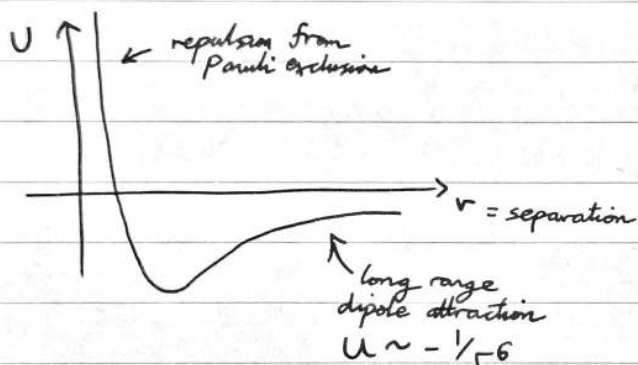 U
repulsion from
Pauli exclusion
r = separation
long range
dipole attraction
U ~ - 1/r6